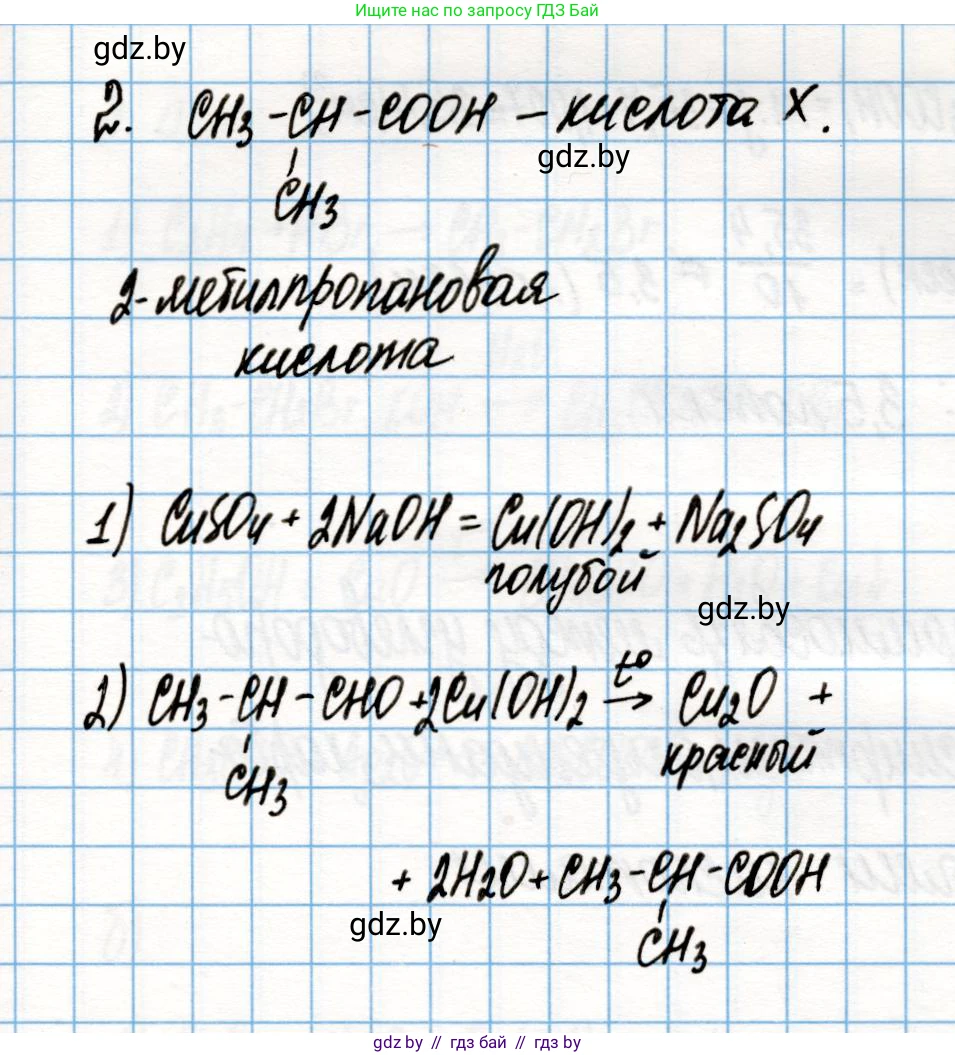 Ищите нас по запросу ГДЗ Бай
gdz.by
2. CH3-CH-COOH - кислота X.
gdz.by
CH3
2-метилпропановая
кислота
1) CuSO4 + 2NaOH = Cu(OH)2 + Na2SO4
голубой
gdz.by
2) CH3-CH-CHO + 2Cu(OH)2 t° → Cu2O +
красный
CH3
+ 2H2O + CH3-CH-COOH
gdz.by
CH3
gdz.by // гдз бай // gdz.by